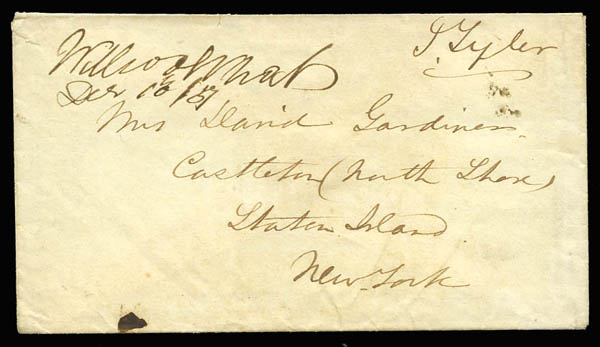 J. Tyler
Willcox Wharf
Dec 10th /51
Mrs David Gardiner.
Castleton (North Shore)
Staten Island
New-York